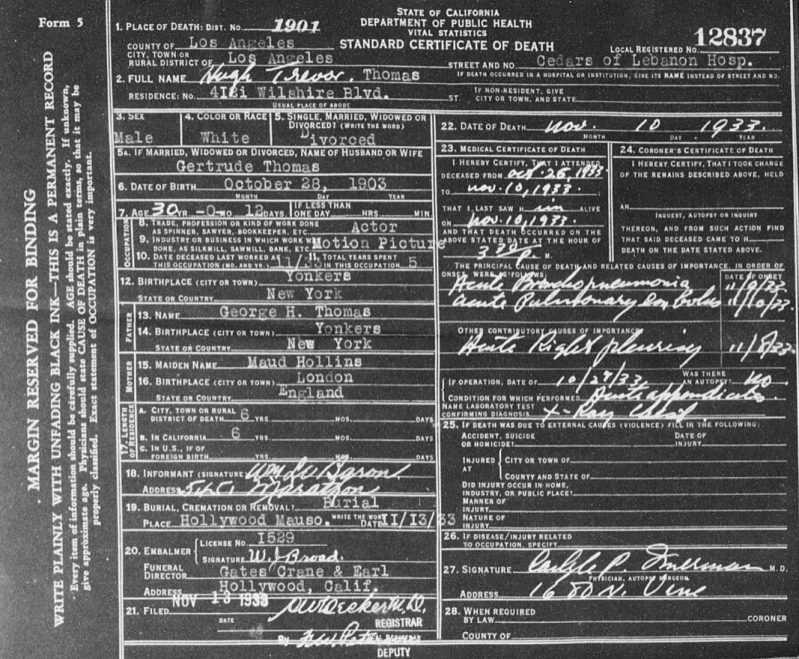 STATE OF CALIFORNIA
DEPARTMENT OF PUBLIC HEALTH
VITAL STATISTICS
STANDARD CERTIFICATE OF DEATH
Form 5
MARGIN RESERVED FOR BINDING
WRITE PLAINLY WITH UNFADING BLACK INK—THIS IS A PERMANENT RECORD
Every item of information should be carefully supplied. AGE should be stated exactly. If unknown,
give approximate age. Physicians should state CAUSE OF DEATH in plain terms, so that it may be
properly classified. Exact statement of OCCUPATION is very important.
1. PLACE OF DEATH: DIST. NO. 1901
LOCAL REGISTERED NO. 12837
COUNTY OF Los Angeles
CITY, TOWN OR
RURAL DISTRICT OF Los Angeles
STREET AND NO. Cedars of Lebanon Hosp.
IF DEATH OCCURRED IN A HOSPITAL OR INSTITUTION, GIVE ITS NAME INSTEAD OF STREET AND NO.
2. FULL NAME Hugh Trevor Thomas
IF NON-RESIDENT, GIVE
RESIDENCE: NO. Wilshire Blvd. ST. CITY OR TOWN, AND STATE
USUAL PLACE OF ABODE
3. SEX Male
4. COLOR OR RACE White
5. SINGLE, MARRIED, WIDOWED OR
DIVORCED? (WRITE THE WORD)
Divorced
5A. IF MARRIED, WIDOWED OR DIVORCED, NAME OF HUSBAND OR WIFE
Gertrude Thomas
6. DATE OF BIRTH October 28, 1903
MONTH DAY YEAR
7. AGE 30 YR. -0- MO. 12 DAYS
IF LESS THAN
ONE DAY HRS MIN.
OCCUPATION
8. TRADE, PROFESSION OR KIND OF WORK DONE
AS SPINNER, SAWYER, BOOKKEEPER, ETC. Actor
9. INDUSTRY OR BUSINESS IN WHICH WORK WAS
DONE, AS SILKMILL, SAWMILL, BANK, ETC. Motion Picture
10. DATE DECEASED LAST WORKED AT
THIS OCCUPATION (MO. AND YR.)
11. TOTAL YEARS SPENT
IN THIS OCCUPATION 5
12. BIRTHPLACE (CITY OR TOWN) Yonkers
STATE OR COUNTRY New York
FATHER
13. NAME George H. Thomas
14. BIRTHPLACE (CITY OR TOWN) Yonkers
STATE OR COUNTRY New York
MOTHER
15. MAIDEN NAME Maud Hollins
16. BIRTHPLACE (CITY OR TOWN) London
STATE OR COUNTRY England
17. LENGTH OF RESIDENCE
A. CITY, TOWN OR RURAL
DISTRICT OF DEATH 6 YRS. MOS. DAYS
B. IN CALIFORNIA 6 YRS. MOS. DAYS
C. IN U.S., IF OF
FOREIGN BIRTH YRS. MOS. DAYS
18. INFORMANT (SIGNATURE)
ADDRESS
19. BURIAL, CREMATION OR REMOVAL? Burial
WRITE THE WORD
PLACE Hollywood Mauso. DATE 11/13/33
20. EMBALMER LICENSE NO. 1529
SIGNATURE W. J. Broad.
FUNERAL
DIRECTOR Gates Crane & Earl
ADDRESS Hollywood, Calif.
21. FILED NOV 13 1933
DATE
REGISTRAR
BY
DEPUTY
22. DATE OF DEATH Nov. 10 1933
MONTH DAY YEAR
23. MEDICAL CERTIFICATE OF DEATH
I HEREBY CERTIFY, THAT I ATTENDED
DECEASED FROM Oct. 1933
TO Nov. 10, 1933.
THAT I LAST SAW him ALIVE
ON Nov. 10, 1933.
AND THAT DEATH OCCURRED ON THE
ABOVE STATED DATE AT THE HOUR OF
P. M.
24. CORONER'S CERTIFICATE OF DEATH
I HEREBY CERTIFY, THAT I TOOK CHARGE
OF THE REMAINS DESCRIBED ABOVE, HELD
AN
INQUEST, AUTOPSY OR INQUIRY
THEREON, AND FROM SUCH ACTION FIND
THAT SAID DECEASED CAME TO H
DEATH ON THE DATE STATED ABOVE.
THE PRINCIPAL CAUSE OF DEATH AND RELATED CAUSES OF IMPORTANCE, IN ORDER OF
ONSET, WERE AS FOLLOWS:
DATE OF ONSET
Acute Bronchopneumonia 11/9/33
Acute Pulmonary embolus 11/10/33
OTHER CONTRIBUTORY CAUSES OF IMPORTANCE:
Acute Right pleurisy 11/8/33
IF OPERATION, DATE OF 10/29/33
WAS THERE
AN AUTOPSY? No
CONDITION FOR WHICH PERFORMED Acute appendicitis
NAME LABORATORY TEST
CONFIRMING DIAGNOSIS X-Ray Chest
25. IF DEATH WAS DUE TO EXTERNAL CAUSES (VIOLENCE) FILL IN THE FOLLOWING:
ACCIDENT, SUICIDE
OR HOMICIDE?
DATE OF
INJURY
INJURED
AT
CITY OR TOWN OF
COUNTY AND STATE OF
DID INJURY OCCUR IN HOME,
INDUSTRY, OR PUBLIC PLACE?
MANNER OF
INJURY
NATURE OF
INJURY
26. IF DISEASE/INJURY RELATED
TO OCCUPATION, SPECIFY
27. SIGNATURE M.D.
PHYSICIAN, AUTOPSY SURGEON
ADDRESS 1680 N. Vine
28. WHEN REQUIRED
BY LAW CORONER
COUNTY OF